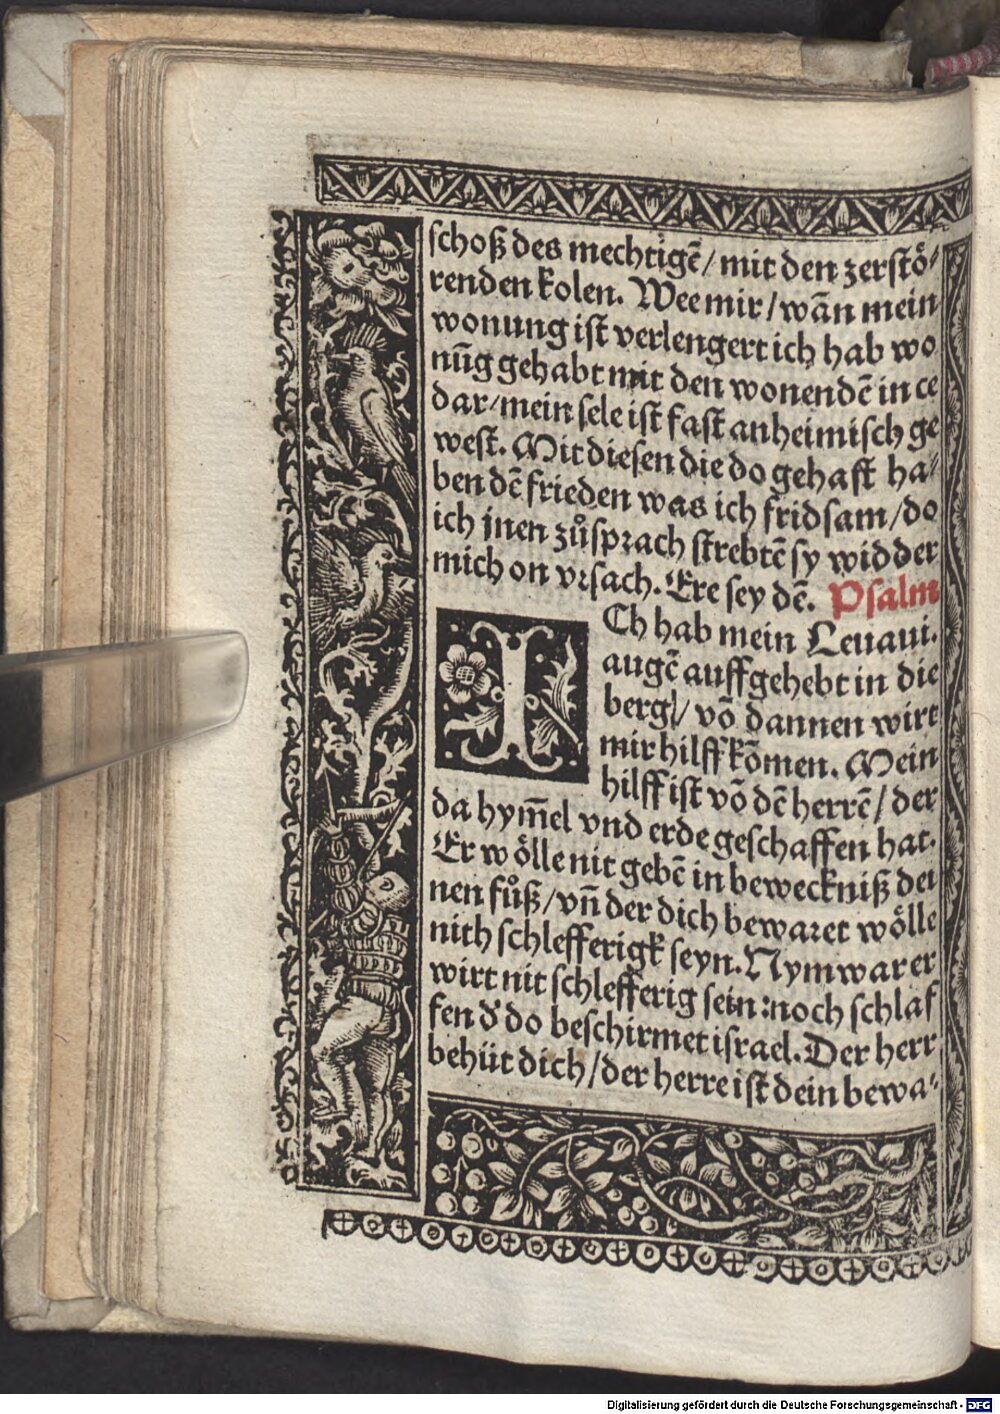 schoß des mechtigē/mit den zerstö⸗
renden kolen. Wee mir/wān mein
wonung ist verlengert ich hab wo
nūg gehabt mit den wonendē in ce
dar/mein sele ist fast anheimisch ge
west. Mit diesen die do gehast ha⸗
ben dē frieden was ich fridsam/do
ich jnen zůsprach strebtē sy widder
mich on vrsach. Ere sey dē. Psalm
ICh hab mein Leuaui.
augē auffgehebt in die
berg/vō dannen wirt
mir hilff kōmen. Mein
hilff ist vō dē herrē/der
da hym̄el vnd erde geschaffen hat.
Er wölle nit gebē in beweckniß dei
nen fůß/vn̄ der dich bewaret wölle
nith schlefferigk seyn. Nym war er
wirt nit schlefferig sein: noch schlaf
fen d' do beschirmet israel. Der herr
behüt dich/der herre ist dein bewa⸗
Digitalisierung gefördert durch die Deutsche Forschungsgemeinschaft - DFG